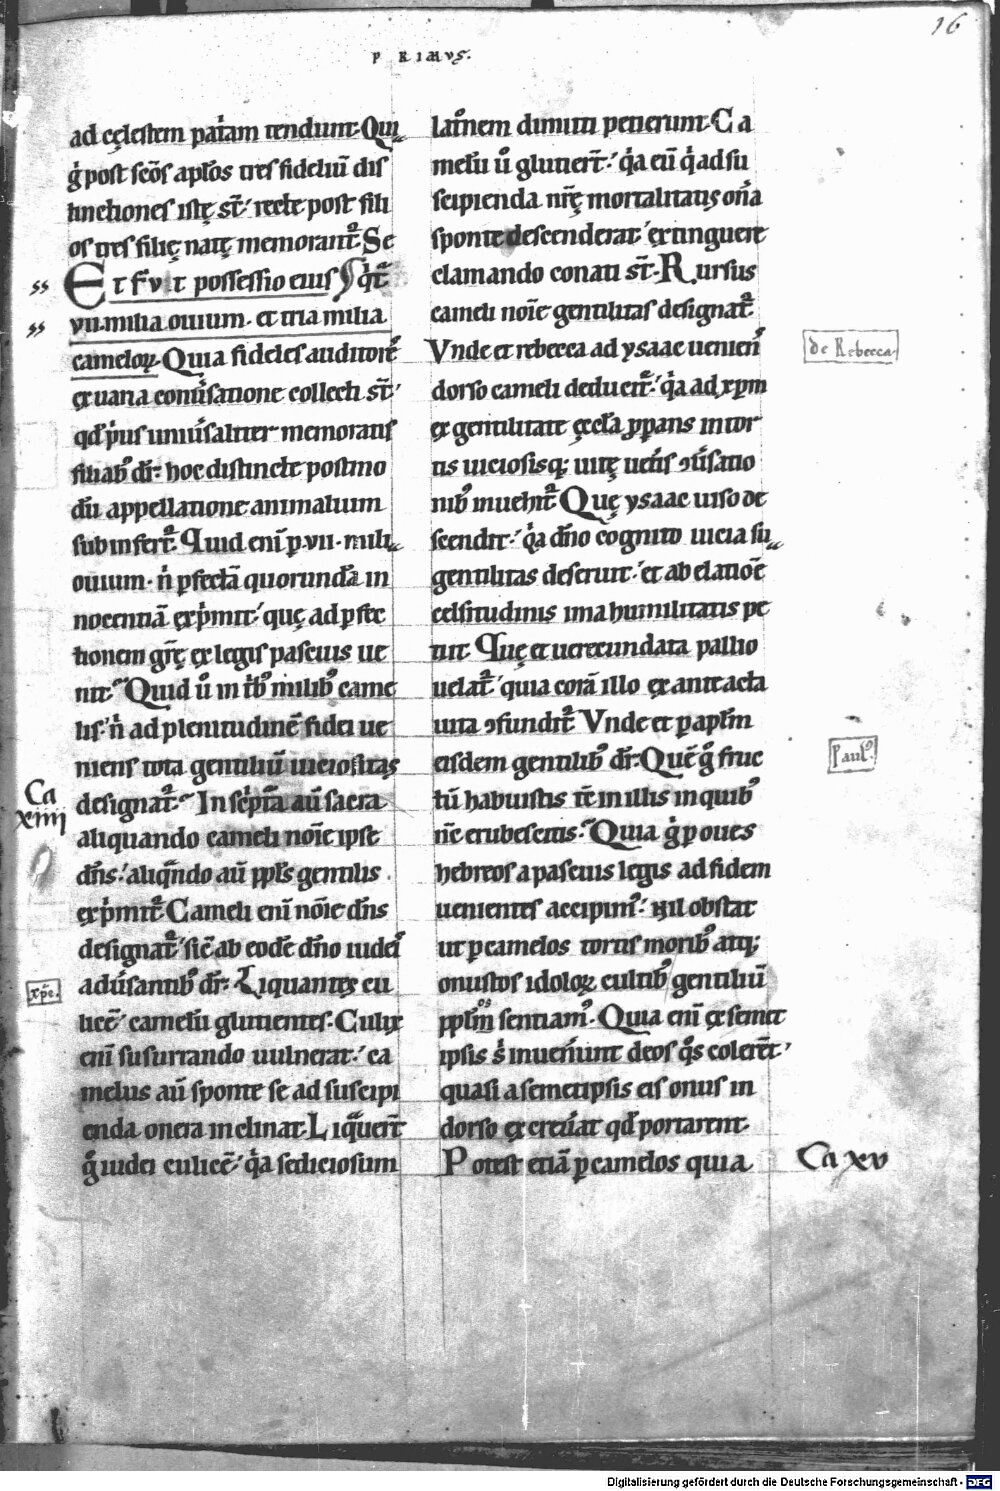 16
PRIMVS.
ad cęlestem pat͛iam tendunt. Qui
g̓ post sc̄os apl̓os tres fideliū dis
tinctiones istę st̄ recte post fili
os tres filię natę memorant᷑. Se
ET FVIT possessio eius q̓t᷑
vii. milia ouium. et tria milia
cameloꝝ. Quia fideles auditores
ex uaria conu͛satione collecti st̄
qd̓ p͛us uniu͛saliter memoratis
filiab᷒ dr̄. hoc distincte postmo
dū appellatione animalium
subinfert᷑. Quid eni̅ ꝑ vii. mili
ouium. n̓ ꝑfectā quorundā in
nocentiā exp͛mit, quę ad ꝑfec
tionem gr̄ę ex legis pascuis ue
nit. Quid u̓ in trib᷒ milib᷒ came
lis. n̓ ad plenitudinē fidei ue
niens tota gentiliū uiciositas
designat᷑. In sc͛ptā aū sacra
Ca
xiiii
aliquando cameli noīe ipse
dn̄s. aliqn̄do aū ppl̓s gentilis
exp͛mit᷑. Cameli eni̅ noīe dn̄s
designat᷑ sic̄ ab eodē dn̄o iudeis
adu͛santib᷒ dr̄. Liquantes cu
xp̄c.
licē camelū glutientes. Culix
eni̅ susurrando uulnerat. ca
melus aū sponte se ad suscipi
enda onera inclinat. Liquer̄t
g̓ iudei culicē q͛a sediciosum
latr̄nem dimitti petierunt. Ca
melū u̓ glutiert̄. q͛a eū q͛ ad su
scipienda nr̄ę mortalitatis on͛a
sponte descenderat extinguere
clamando conati st̄. Rursus
cameli noīe gentilitas designat᷑.
Vnde et rebecca ad ysaac ueniens
de Rebecca.
dorso cameli deducit᷑. q͛a ad xp̄m
ex gentilitate eccl̓a ꝓpans in tor
tis uiciosisq; uitę uet͛is ↄu͛satio
nib᷒ inuenit᷑. Quę ysaac uiso de
scendit. q͛a dn̄o cognito uicia su
gentilitas deseruit. et ab elatiōe
celsitudinis ima humilitatis pe
tiit. Quę et uerecundata pallio
uelat᷑ quia corā illo ex anteacta
uita ↄfundit᷑. Vnde et ꝑ apl̓m
eisdem gentilib᷒ dr̄. Quē g̓ fruc
Paul᷒
tū habuistis tc̄ in illis in quib᷒
nc̄ erubescitis. Quia g̓ ꝑ oues
hebreos a pascuis legis ad fidem
uenientes accipim᷒. nil obstat
ut ꝑ camelos tortis morib᷒ atq;
onustos idoloꝝ cultib᷒ gentiliū
ppl̓os sentiam᷒. Quia eni̅ ex semet
ipsis s͛ inuener̄unt deos q᷒s coler̄et.
quasi a semetipsis eis onus in
dorso excreu͛at qd̓ portarent.
Potest etiā ꝑ camelos quia
Ca xv
Digitalisierung gefördert durch die Deutsche Forschungsgemeinschaft - DFG